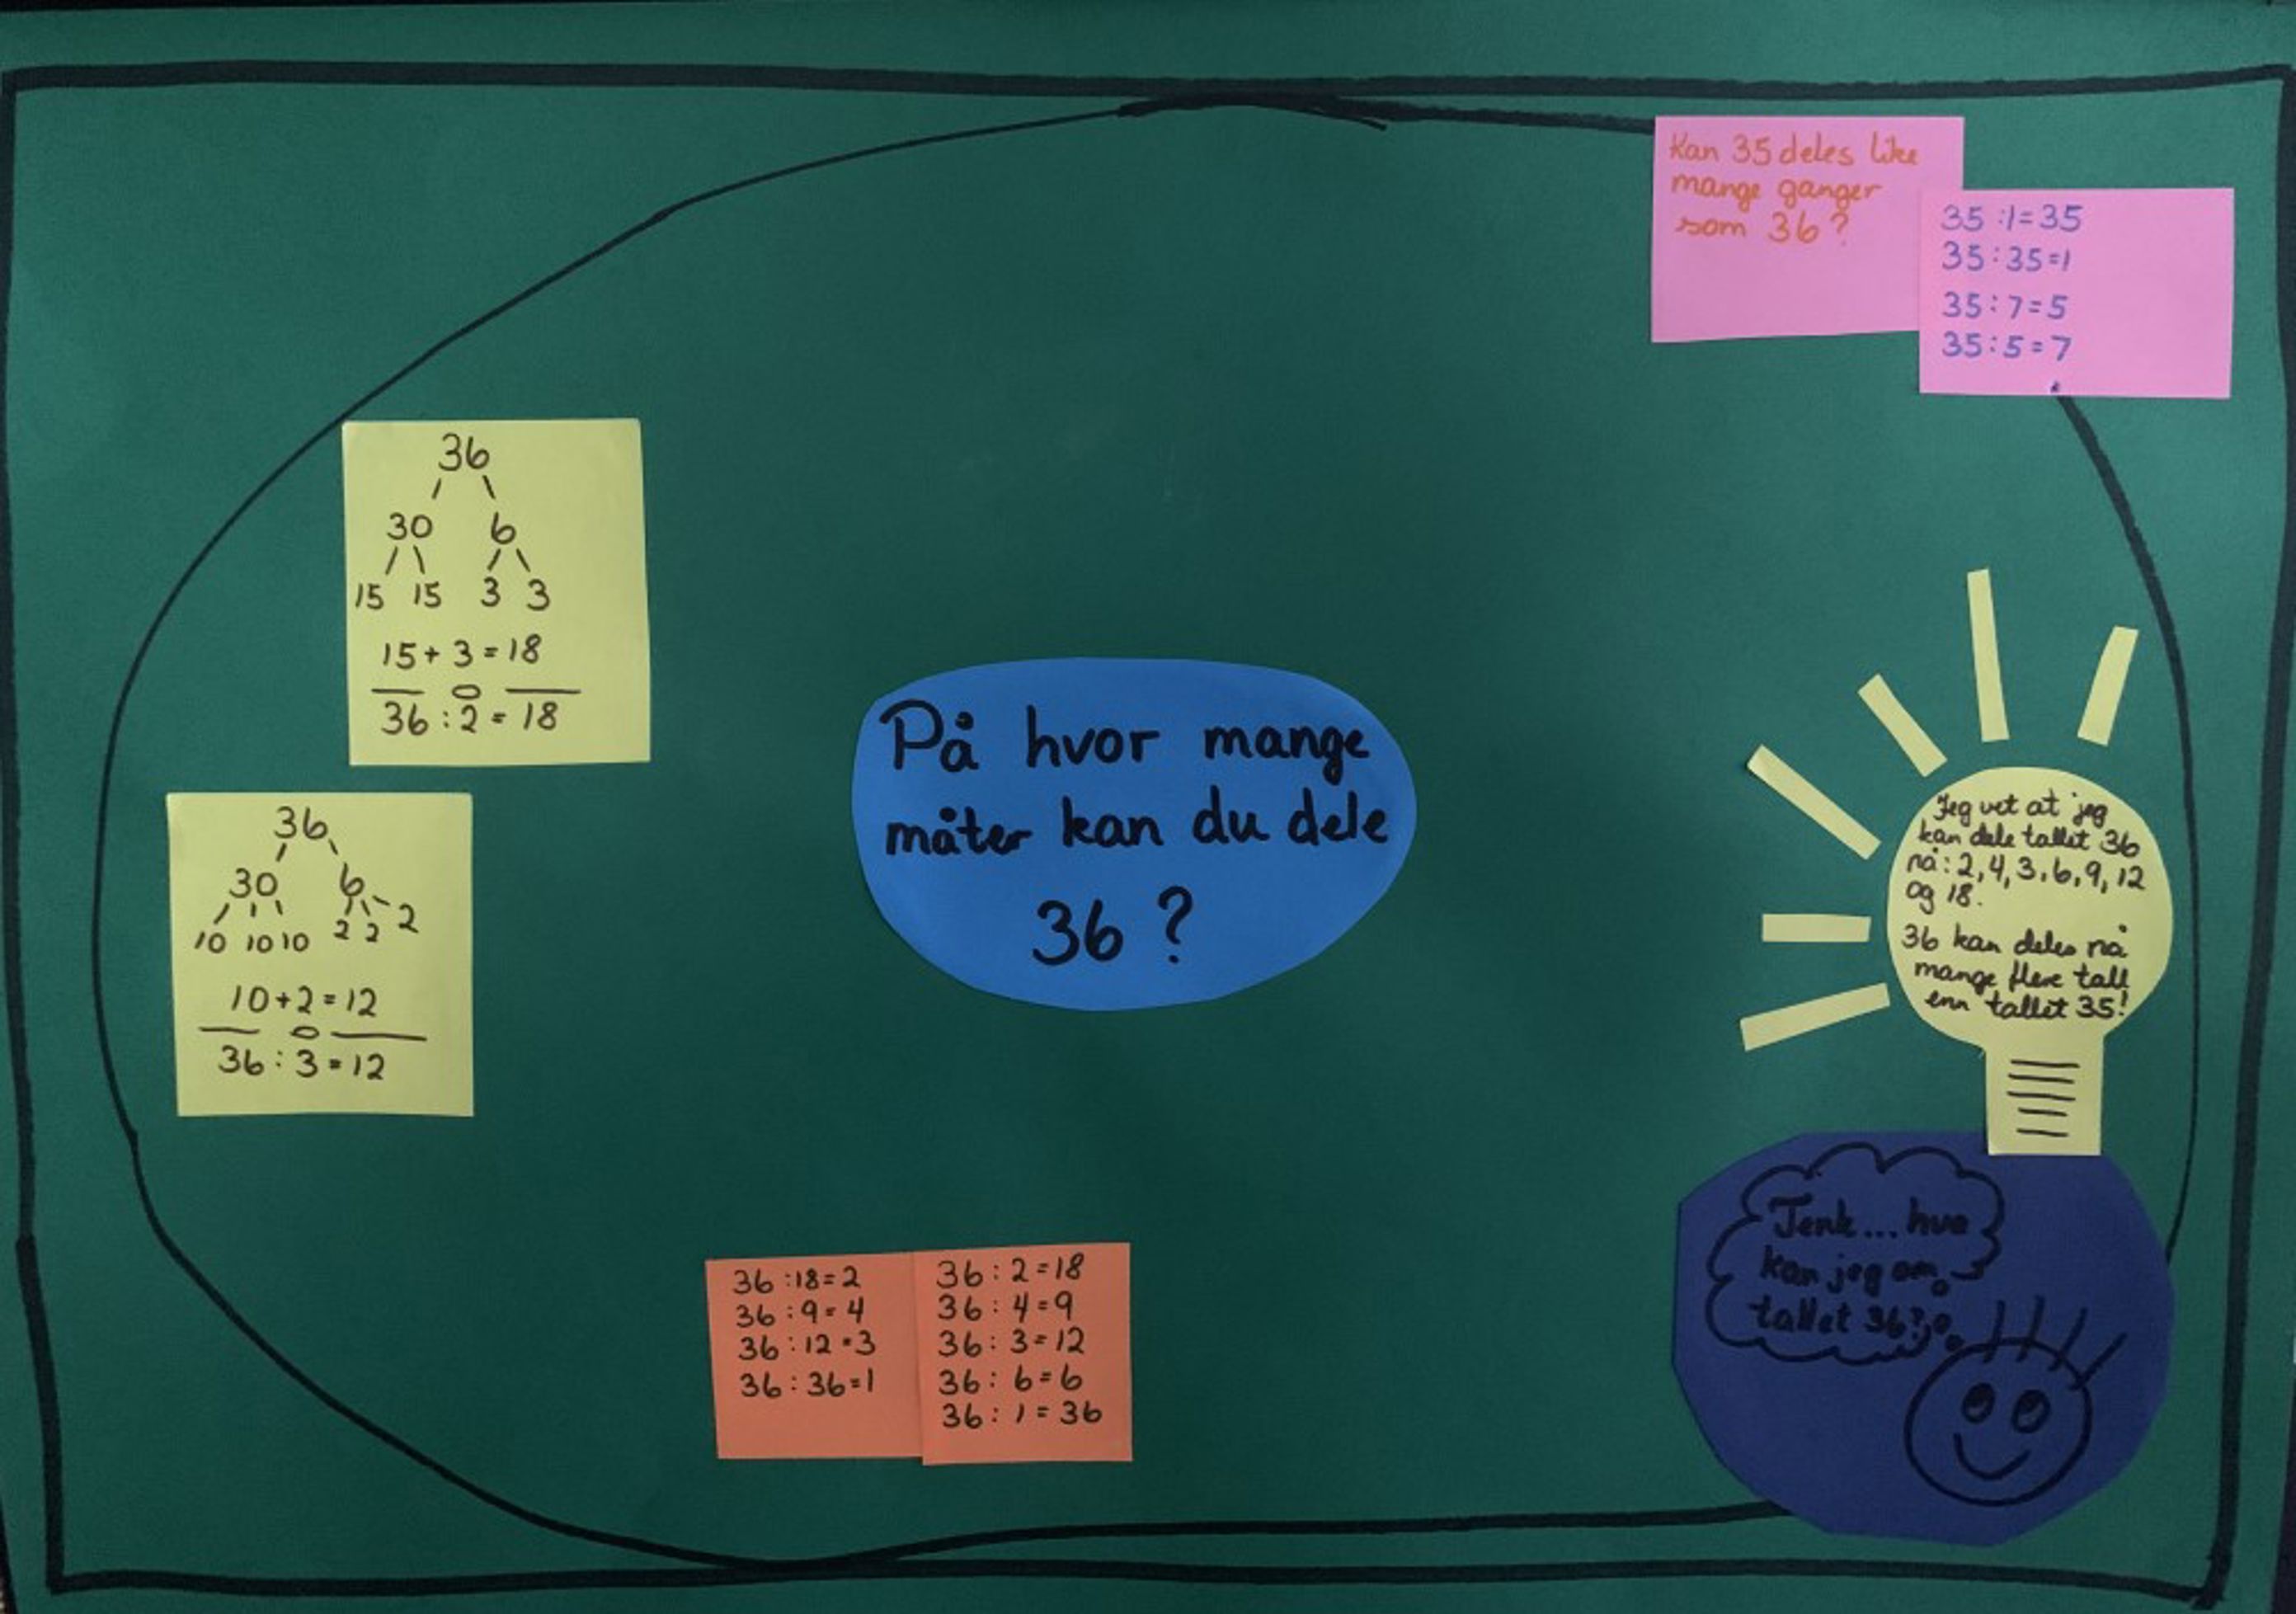 Kan 35 deles like
mange ganger
som 36?
35:1=35
35:35=1
35:7=5
35:5=7
36
30 6
15 15 3 3
15+3=18
36:2=18
36
30 6
10 10 10 2 2 2
10+2=12
36:3=12
På hvor mange
måter kan du dele
36?
Jeg vet at jeg
kan dele tallet 36
på: 2, 4, 3, 6, 9, 12
og 18.
36 kan deles på
mange flere tall
enn tallet 35!
36:18=2
36:9=4
36:12=3
36:36=1
36:2=18
36:4=9
36:3=12
36:6=6
36:1=36
Tenk... hva
kan jeg om
tallet 36?